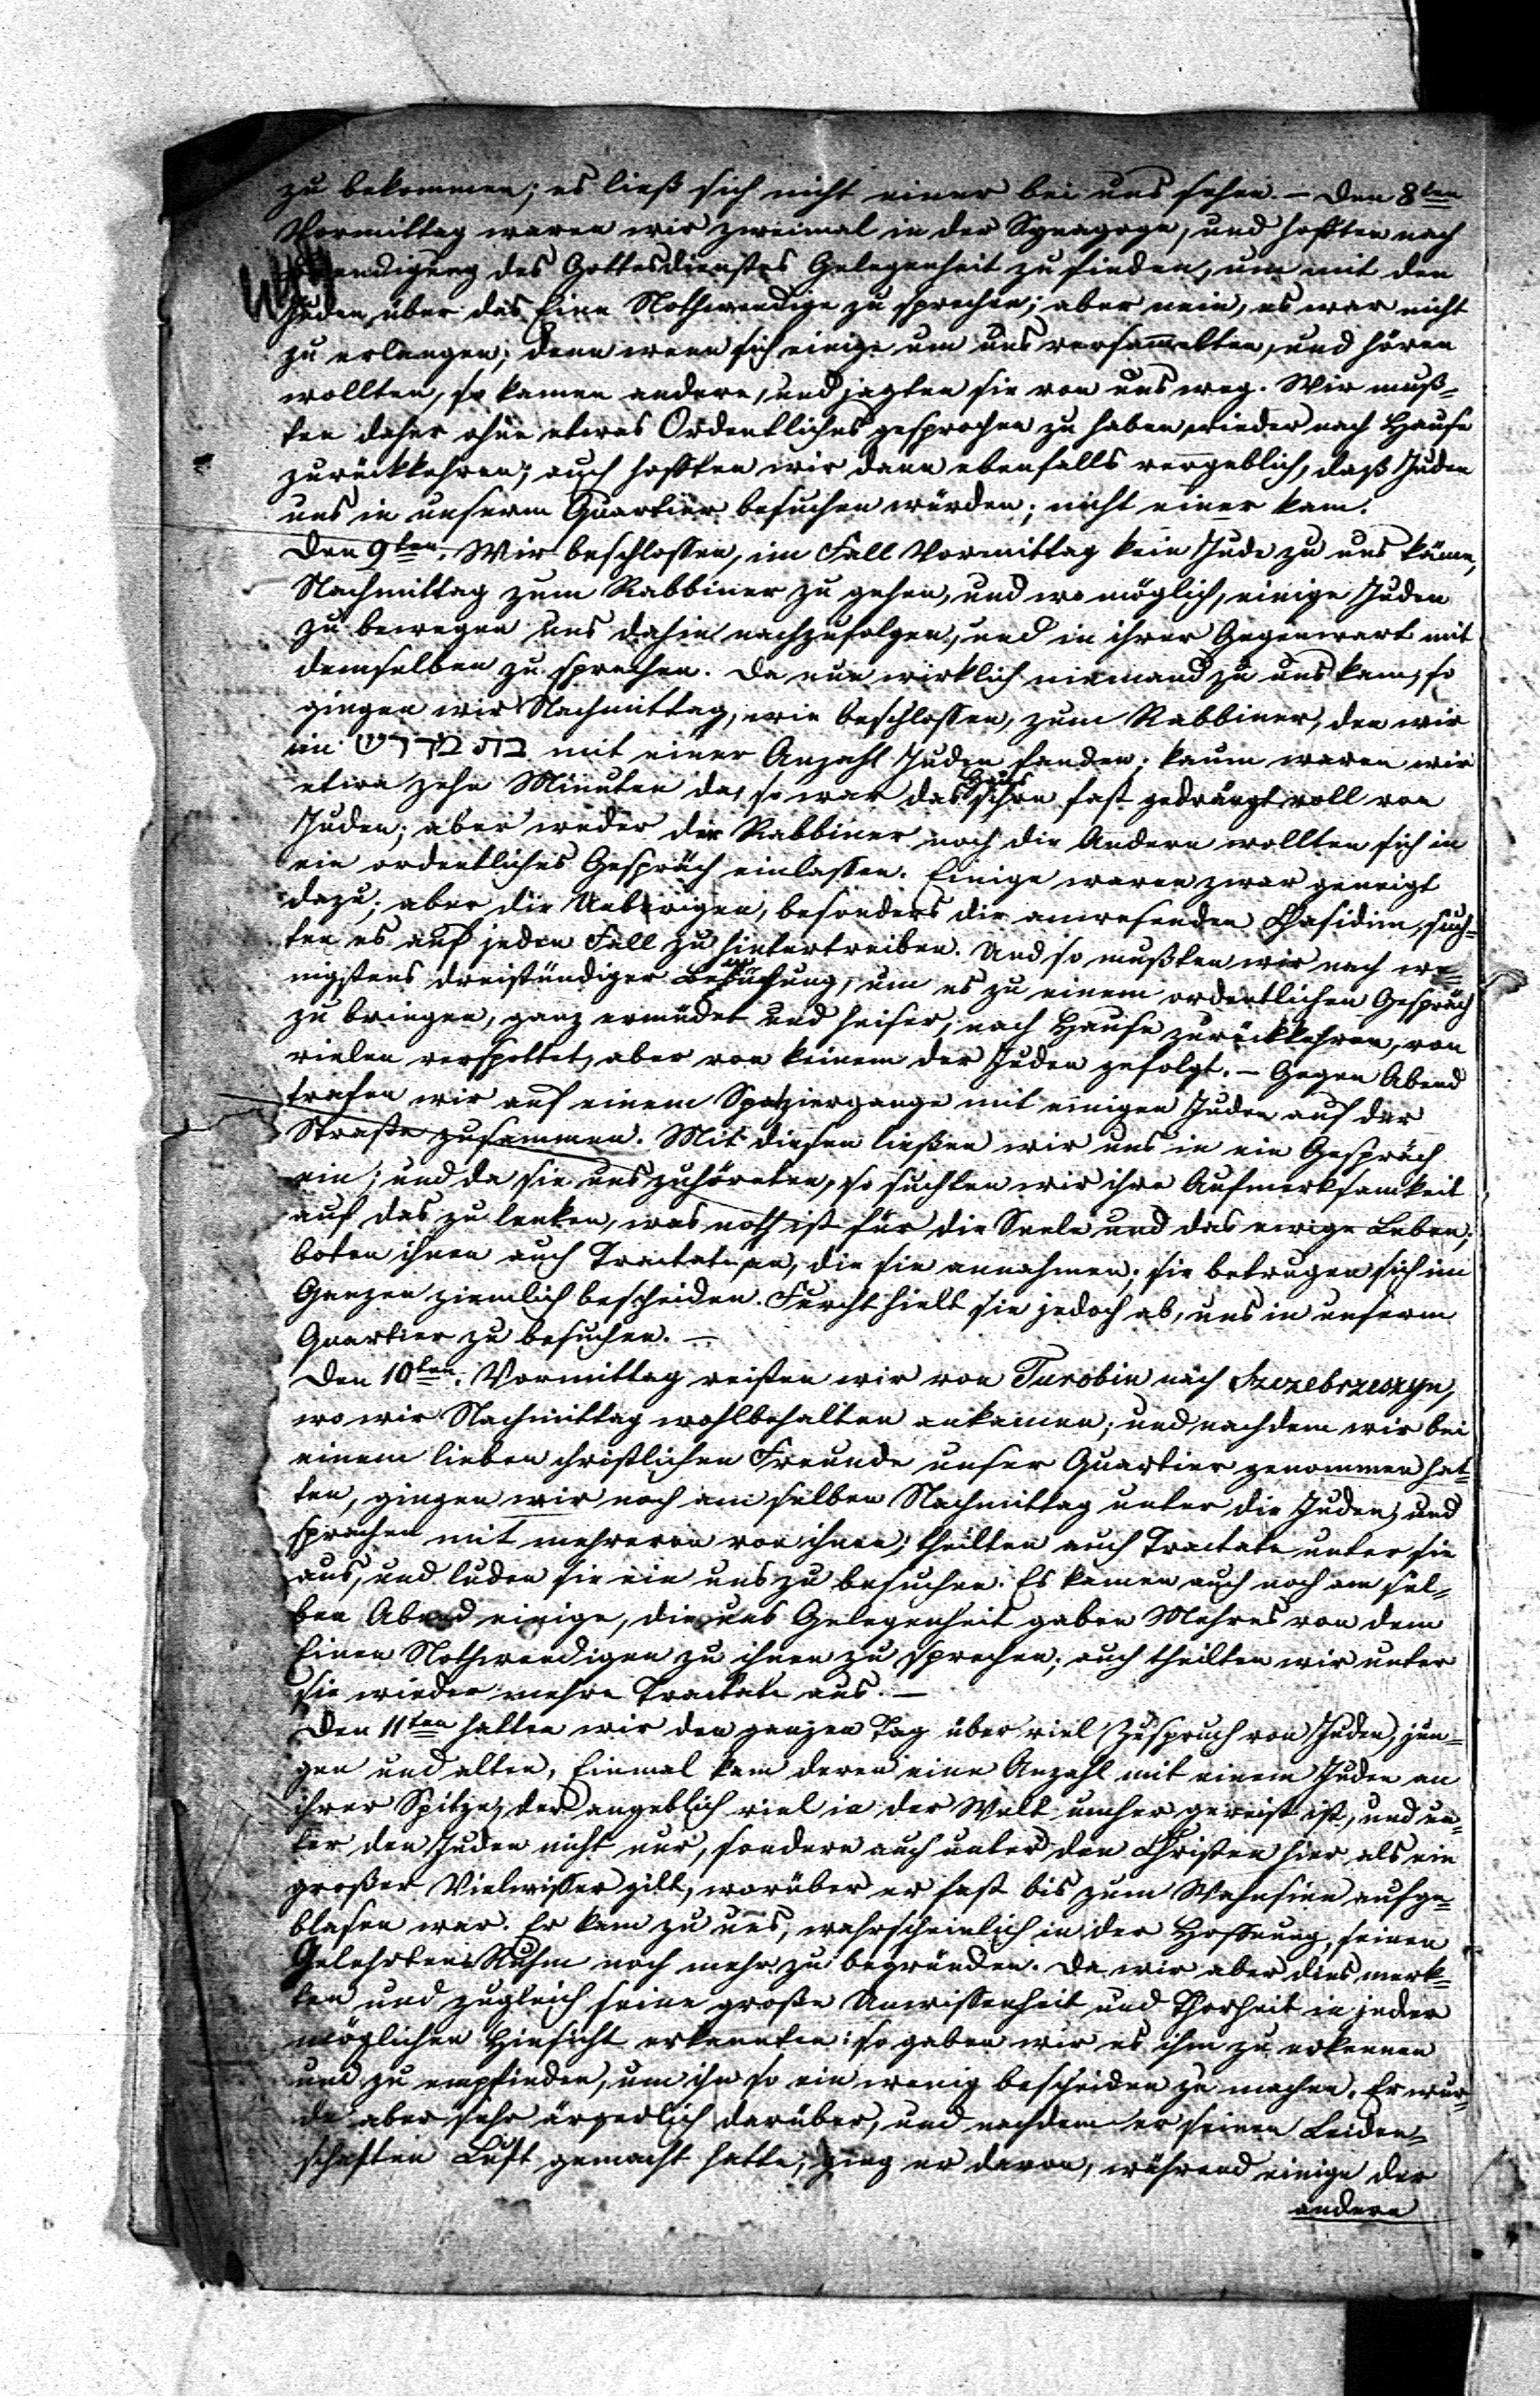 zu bekommen; es ließ sich nicht einer bei uns sehen. – Den 8ten
Vormittag waren wir zweimal in der Synagoge, und hofften nach
Beendigung des Gottesdienstes Gelegenheit zu finden, um mit den
Juden über das Eine Nothwendige zu sprechen; aber nein, es war nicht
zu erlangen; denn wenn sich einige um uns versammelten, und hören
wollten, so kamen andere, und jagten sie von uns weg. Wir muß=
ten daher ohne etwas Ordentliches gesprochen zu haben wieder nach Hause
zurückkehren; auch hofften wir dann ebenfalls vergeblich, daß Juden
uns in unserm Quartier besuchen würden; nicht einer kam.
Den 9ten. Wir beschlossen, im Fall Vormittag kein Jude zu uns käme,
Nachmittag zum Rabbiner zu gehen, und wo möglich, einige Juden
zu bewegen uns dahin nachzufolgen, und in ihrer Gegenwart mit
demselben zu sprechen. Da nun wirklich niemand zu uns kam, so
gingen wir Nachmittag, wie beschlossen, zum Rabbiner, den wir
im בת מדרש mit einer Anzahl Juden fanden; kaum waren wir
etwa zehn Minuten da, so war das Haus schon fast gedrängt voll von
Juden; aber weder der Rabbiner noch die Andern wollten sich in
ein ordentliches Gespräch einlassen. Einige waren zwar geneigt
dazu; aber die Uebrigen, besonders die anwesenden Chasidim, such=
ten es auf jeden Fall zu hintertreiben. Und so mußten wir nach we=
nigstens dreistündiger Bemühung, um es zu einem ordentlichen Gespräch
zu bringen, ganz ermüdet und heiser, nach Hause zurückkehren, von
vielen verspottet, aber von keinem der Juden gefolgt. – Gegen Abend
trafen wir auf einem Spatziergange mit einigen Juden auf der
Straße zusammen. Mit diesen ließen wir uns in ein Gespräch
ein; und da sie uns zuhöreten, so suchten wir ihre Aufmerksamkeit
auf das zu lenken, was noth ist für die Seele und das ewige Leben;
boten ihnen auch Tractate an, die sie annahmen; sie betrugen sich im
Ganzen ziemlich bescheiden. Furcht hielt sie jedoch ab, uns in unserm
Quartier zu besuchen. –
Den 10ten. Vormittag reisten wir von Turobin nach Szczebrzeszyn,
wo wir Nachmittag wohlbehalten ankamen; und nachdem wir bei
einem lieben christlichen Freunde unser Quartier genommen hat=
ten, gingen wir noch am selben Nachmittag unter die Juden, und
sprachen mit mehreren von ihnen; theilten auch Tractate unter sie
aus, und luden sie ein uns zu besuchen. Es kamen auch noch am sel=
ben Abend einige, die uns Gelegenheit gaben Mehres von dem
Einen Nothwendigen zu ihnen zu sprechen; auch theilten wir unter
sie wieder mehre Tractate aus. –
Den 11ten hatten wir den ganzen Tag über viel Zuspruch von Juden, jun=
gen und alten, Einmal kam deren eine Anzahl mit einem Juden an
ihrer Spitze, der angeblich viel in der Welt umher gereist ist, und un=
ter den Juden nicht nur, sondern auch unter den Christen hier als ein
großer Vielwisser gilt, worüber er fast bis zum Wahnsinn aufge=
blasen war. Er kam zu uns, wahrscheinlich in der Hoffnung, seinen
Gelehrten Ruhm noch mehr zu begründen. Da wir aber dies merk=
ten und zugleich seine große Unwissenheit und Thorheit in jeder
möglichen Hinsicht erkannten: so gaben wir es ihm zu erkennen
und zu empfinden, um ihn so ein wenig bescheiden zu machen. Er wur=
de aber sehr ärgerlich darüber, und nachdem er seinen Leiden=
schaften Luft gemacht hatte, ging er davon, während einige der
andern